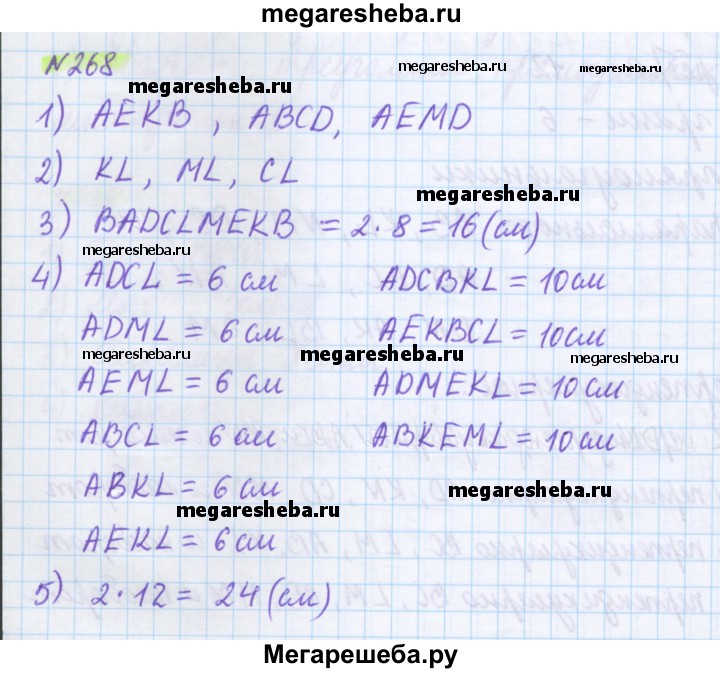 megaresheba.ru
№268
megaresheba.ru megaresheba.ru megaresheba.ru
1) AEKB, ABCD, AEMD
2) KL, ML, CL
megaresheba.ru
3) BADCLMEKB = 2·8=16(см)
megaresheba.ru
4) ADCL = 6 см ADCBKL = 10см
ADML = 6см AEKBCL = 10см
megaresheba.ru megaresheba.ru megaresheba.ru
AEML = 6 см ADMEKL = 10см
ABCL = 6см ABKEML = 10см
ABKL = 6см megaresheba.ru
megaresheba.ru
AEKL = 6см
5) 2·12 = 24(см)
Мегарешеба.ру